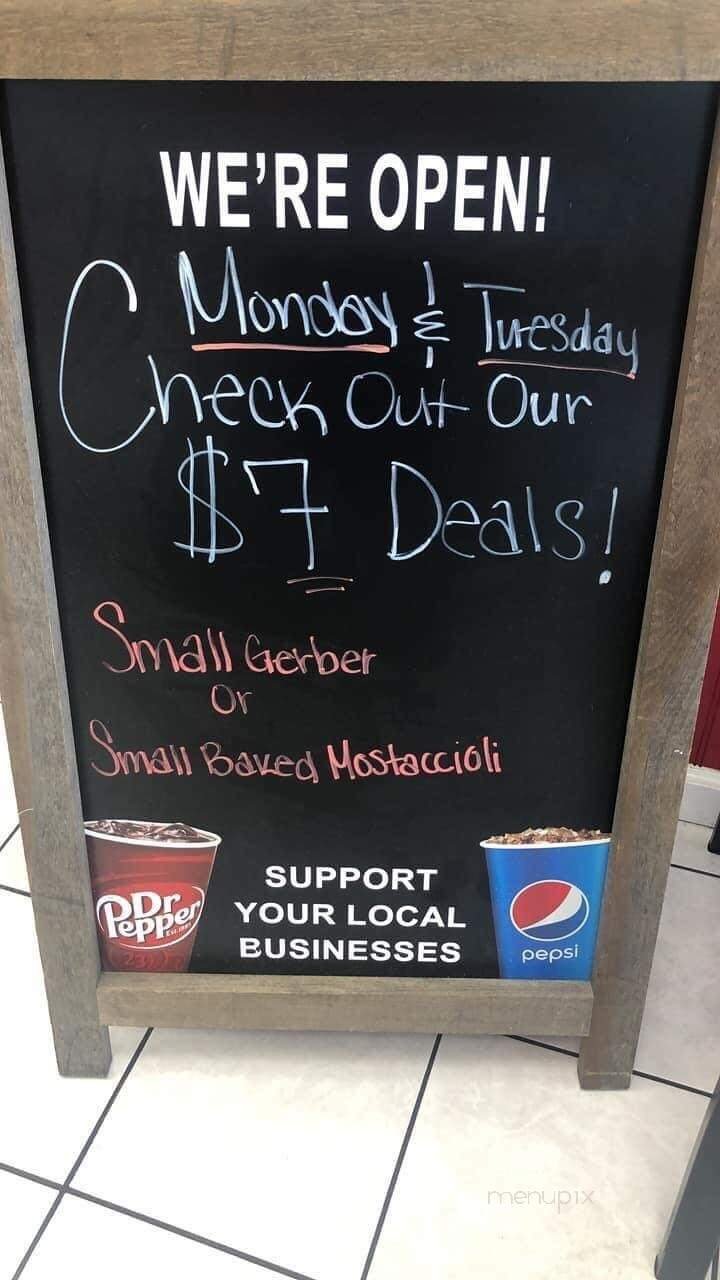 WE'RE OPEN!
Monday & Tuesday
Check Out Our
$7 Deals!
Small Gerber
Or
Small Baked Mostaccioli
SUPPORT
YOUR LOCAL
BUSINESSES
Dr Pepper
EST. 1885
23
pepsi
menupix